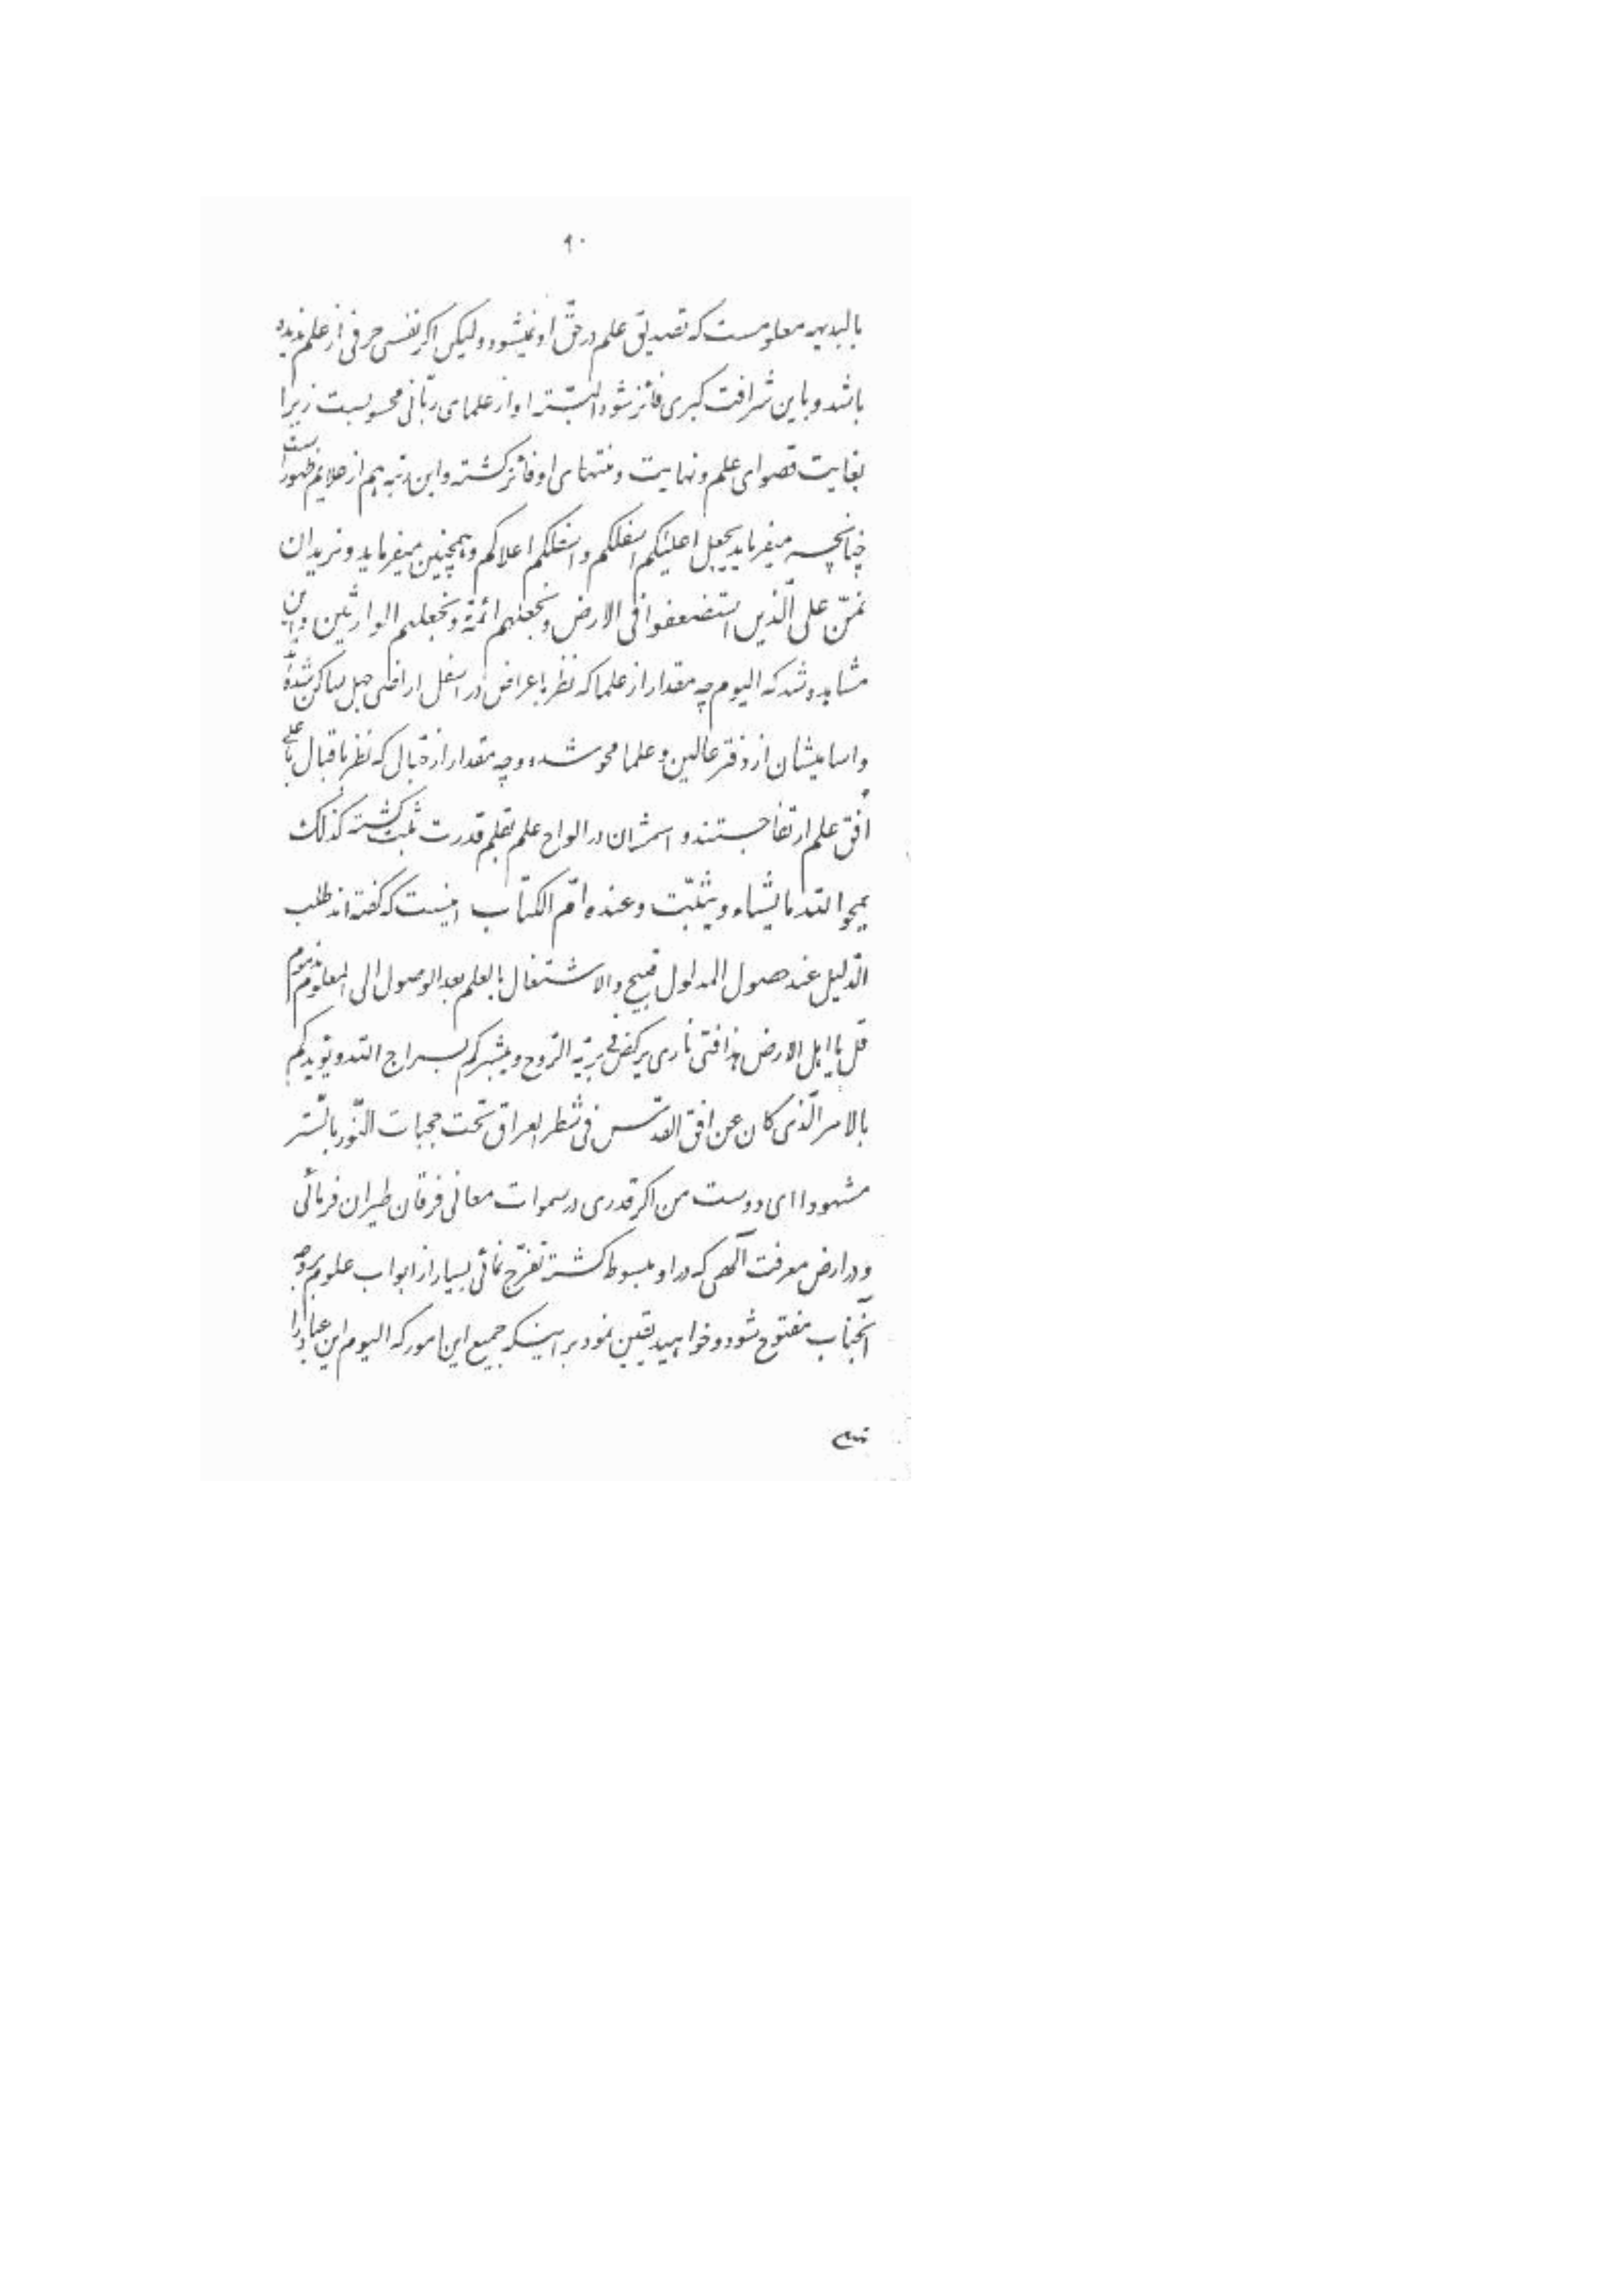 ٩٠
بالبدیهه معلومست که تصدیق علم در حقّ او نمیشود ولیکن اکر نفسی حرفی از علم ندیده
باشد و باین شرافت کبری فائز شود البتّه او از علمای ربّانی محسوبست زیرا
بغایت قصوای علم و نهایت و منتهای او فائز کشته و این رتبه هم از علایم ظهور است
چنانچه میفرماید یجعل اعلیکم اسفلکم و اسفلکم اعلاکم و همچنین میفرماید و نرید ان
نمنّ علی الّذین استضعفوا فی الارض و نجعلهم ائمّة و نجعلهم الوارثین و این
مشاهده شد که الیوم چه مقدار از علما که نظر باعراض در اسفل اراضی جهل ساکن شده‌اند
و اسامیشان از دفتر عالین و علما محو شده و چه مقدار از جهّال که نظر باقبال باعلی
افق علم ارتفاع جستند و اسمشان در الواح علم بقلم قدرت ثبت کشته کذلک
یمحوا اللّه ما یشاء و یثبّت و عنده امّ الکتاب اینست که کفته‌اند طلب
الدّلیل عند حصول المدلول قبیح و الاشتغال بالعلم بعد الوصول الی المعلوم مذموم
قل یا اهل الارض هذا فتی ناری یرکض فی بریّه الرّوح و یبشّرکم بسراج اللّه و یذکرکم
بالامر الّذی کان عن افق القدس فی شطر العراق تحت حجبات النّور بالسّتر
مشهودا ای دوست من اکر قدری در سموات معانی فرقان طیران فرمائی
و در ارض معرفت آلهی که در او مبسوط کشته تفرّج نمائی بسیار از ابواب علوم بر وجه
آنجناب مفتوح شود و خواهید یقین نمود بر اینکه جمیع این امور که الیوم این عباد را